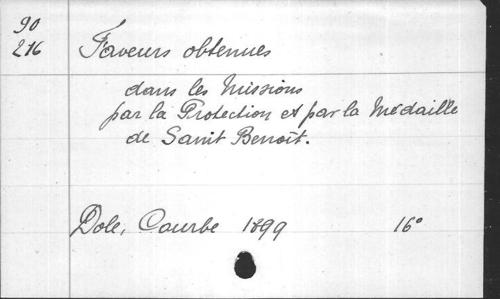 90
216
Faveurs obtenues
dans les Missions
par la Protection et par la Médaille
de Sanit Benoît.
Dole, Courbe 1899 16°